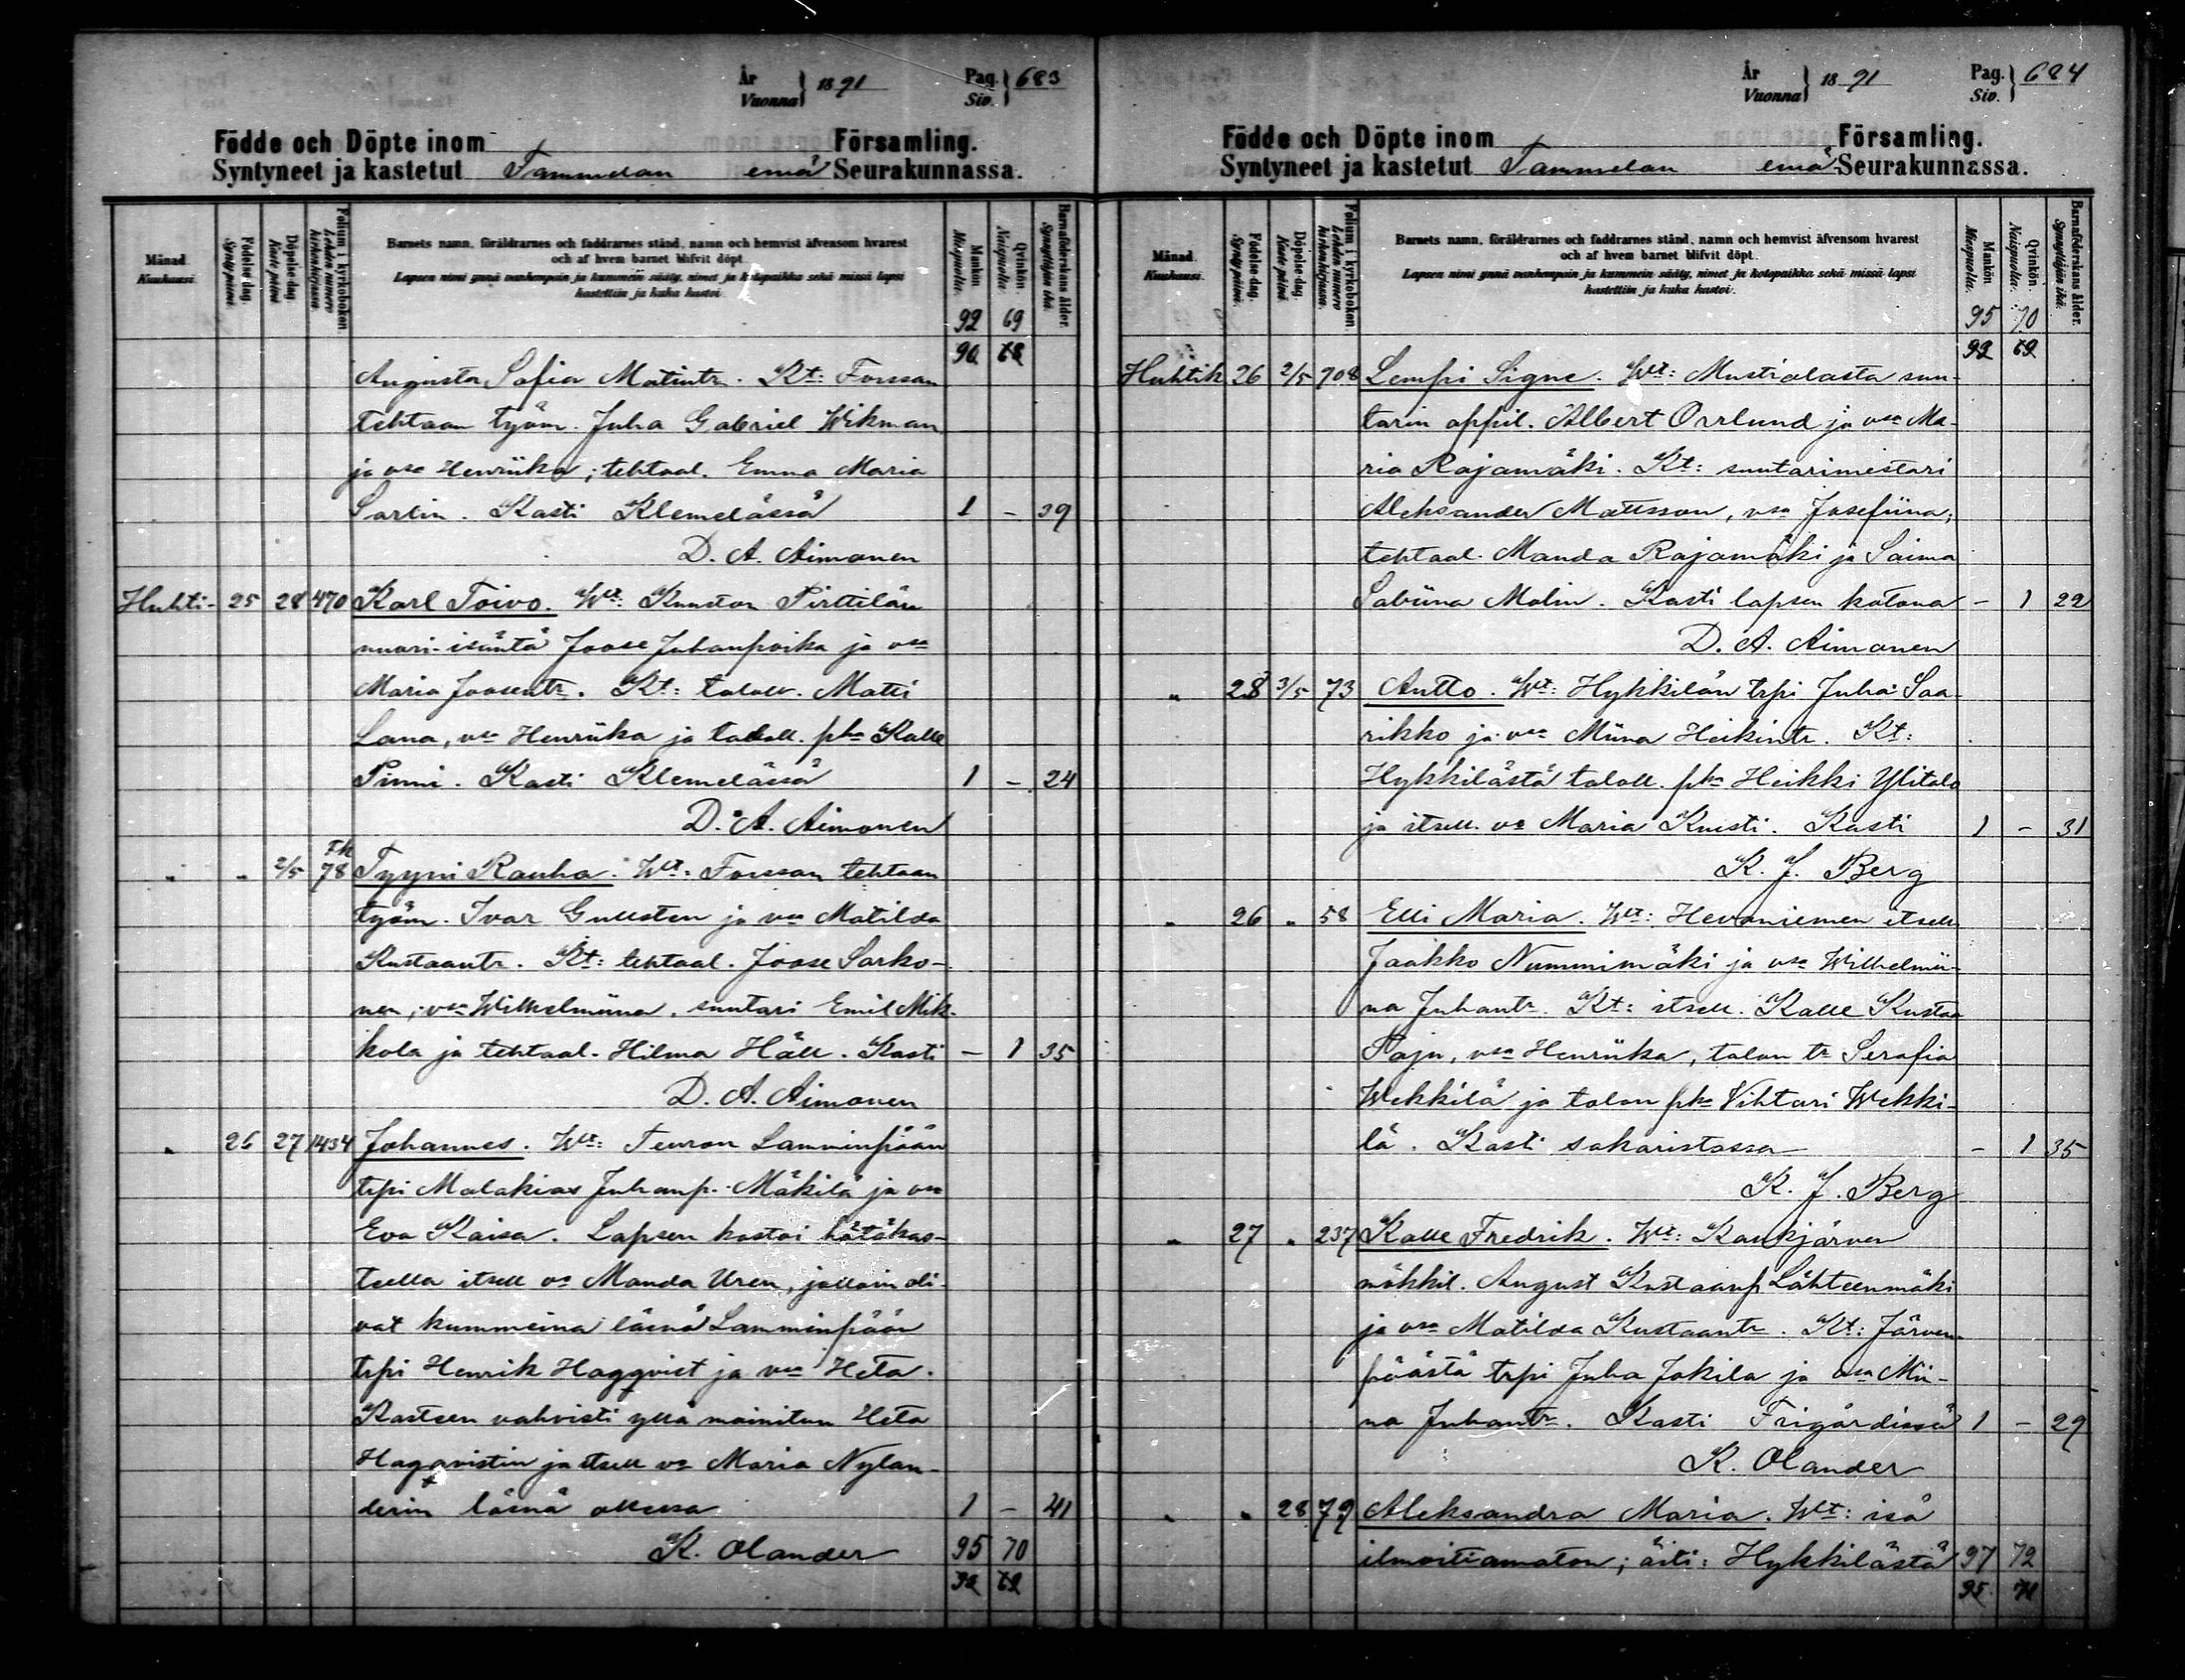 År Vuonna } 1891 Pag. Siv. } 683
Födde och Döpte inom Församling.
Syntyneet ja kastetut Tammelan emä Seurakunnassa.
Månad. Kuukausi.
Födelse dag. Synty päivä.
Döpelse dag. Kaste päivä.
Folium i kyrkoboken. Lehden numero kirkonkirjassa.
Barnets namn, föräldrarnes och faddrarnes stånd, namn och hemvist äfvensom hvarest
och af hvem barnet blifvit döpt.
Lapsen nimi ynnä vanhempain ja kummein sääty, nimet ja kotopaikka sekä missä lapsi
kastettiin ja kuka kastoi.
Mankön. Miespuolia.
Qvinkön. Naispuolia.
Barnaföderskans ålder. Synnyttäjän ikä.
92 69
90 68
Augusta Sofia Matintr. Kt: Forssan
tehtaan työm. Juha Gabriel Wikman
ja vsa Henriika; tehtaal. Emma Maria
Sarlin. Kasti Klemelässä 1 - 39
D. A. Aimonen
Huhti- 25 28 470 Karl Toivo. Wt: Kuuston Pirttilän
nuori-isäntä Joose Juhanpoika ja vsa
Maria Joosentr. Kt: taloll. Matti
Lana, vsa Henriika ja taloll. pka Kalle
Pinni. Kasti Klemelässä 1 - 24
D. A. Aimonen
" " 2/5 Th 78 Tyyni Rauha. Wt: Forssan tehtaan
työm. Ivar Gullsten ja vsa Matilda
Kustaantr. Kt: tehtaal. Joose Sarko-
nen, vsa Wilhelmiina, suutari Emil Mik-
kola ja tehtaal. Hilma Häll. Kasti - 1 35
D. A. Aimonen
" 26 27 1434 Johannes. Wt: Teuron Lamminpään
trpi Malakias Juhanp. Mäkilä ja vsa
Eva Kaisa. Lapsen kastoi hätäkas-
teella itsell va Manda Uren, jolloin oli-
vat kummeina läsnä Lamminpään
trpi Henrik Hagqvist ja vsa Heta.
Kasteen vahvisti yllä mainitun Heta
Hagqvistin ja itsell va Maria Nylan-
derin läsnä ollessa 1 - 41
K. Olander 95 70
92 69
År Vuonna } 1891 Pag. Siv. } 684
Födde och Döpte inom Församling.
Syntyneet ja kastetut Tammelan emä Seurakunnassa.
Månad. Kuukausi.
Födelse dag. Synty päivä.
Döpelse dag. Kaste päivä.
Folium i kyrkoboken. Lehden numero kirkonkirjassa.
Barnets namn, föräldrarnes och faddrarnes stånd, namn och hemvist äfvensom hvarest
och af hvem barnet blifvit döpt.
Lapsen nimi ynnä vanhempain ja kummein sääty, nimet ja kotopaikka sekä missä lapsi
kastettiin ja kuka kastoi.
Mankön. Miespuolia.
Qvinkön. Naispuolia.
Barnaföderskans ålder. Synnyttäjän ikä.
95 70
92 69
Huhtik 26 2/5 708 Lempi Signe. Wt: Mustialasta suu-
tarin oppil. Albert Orrlund ja vsa Ma-
ria Rajamäki. Kt: suutarimestari
Aleksander Mattsson, vsa Josefiina;
tehtaal. Manda Rajamäki ja Saima
Sabiina Molin. Kasti lapsen kotona - 1 22
D. A. Aimonen
" 28 3/5 73 Antto. Wt: Hykkilän trpi Juha Saa-
rikko ja vsa Miina Heikintr. Kt:
Hykkilästä taloll. pka Heikki Ylitalo
ja itsell. va Maria Knisti. Kasti 1 - 31
K. J. Berg
" 26 " 58 Elli Maria. Wt: Hevoniemen itsell
Jaakko Nummimäki ja vsa Wilhelmii-
na Juhantr. Kt: itsell. Kalle Kustaa
Paju, vsa Henriika, talon tr Serafia
Wekkilä ja talon pka Vihtori Wekki-
lä. Kasti sakaristossa - 1 35
K. J. Berg
" 27 " 237 Kalle Fredrik. Wt: Kaukjärven
mökkil. August Kustaanp Lähteenmäki
ja vsa Matilda Kustaantr. Kt: Järven-
päästä trpi Juha Jokila ja vsa Mii-
na Juhantr. Kasti Frigårdissa 1 - 29
K. Olander
" " 28 79 Aleksandra Maria. Wt: isä
ilmoittamaton; äiti: Hykkilästä 97 72
95 71